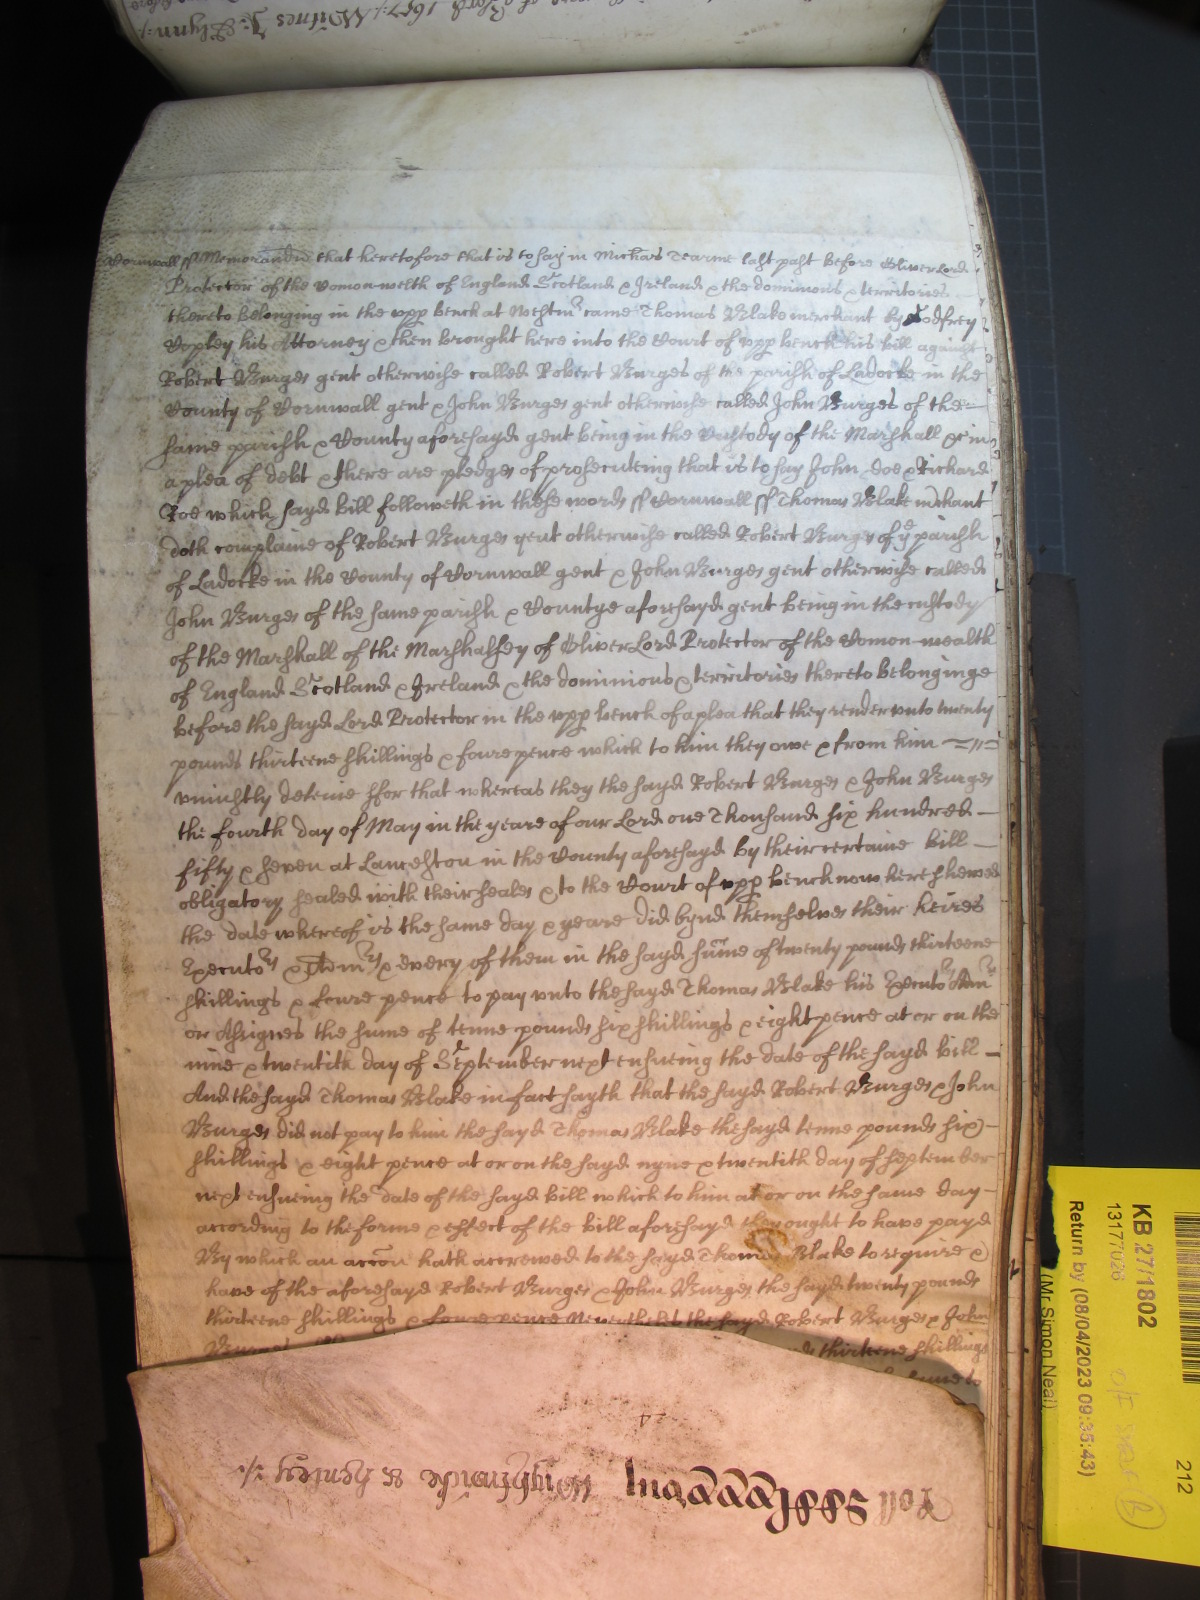 Cornwall ss Memorandu that heretofore that is to say in Michas Tearme last past before Oliver Lord
Protector of the Comonwelth of England Scotland & Ireland & the dominions & territories
thereto belonging in the upp bench at Westmr came Thomas Blake merchant by Godfrey
Copley his Attorney & then brought here into the Court of upp bench his bill against
Robert Burges gent otherwise called Robert Burges of the parish of Ladocke in the
County of Cornwall gent & John Burges gent otherwise called John Burges of the
same parish & County aforesayd gent being in the Custody of the Marshall &c in
a plea of debt & there are pledges of prosecuteing that is to say John doe & Richard
Roe which sayd bill followeth in these words ss Cornwall ss Thomas Blake mchant
doth complaine of Robert Burges gent otherwise called Robert Burges of ye parish
of Ladocke in the County of Cornwall gent & John Burges gent otherwise called
John Burges of the same parish & Countye aforesayd gent being in the custody
of the Marshall of the Marshalsey of Oliver Lord Protector of the Comon-wealth
of England Scotland & Ireland & the dominions & territories thereto belonginge
before the sayd Lord Protector in the upp bench of a plea that they render unto twenty
pounds thirteene shillings & foure pence which to him they owe & from him
uniustly deteine ffor that whereas they the sayd Robert Burges & John Burges
the fourth day of May in the yeare of our Lord one Thousand six hundred
fifty & seven at Lanceston in the County aforesayd by their certaine bill
obligatory sealed with their seales & to the Court of upp bench now here shewed
the date whereof is the same day & yeare did bynd themselves their heires
Executors & Admrs & every of them in the sayd sume of twenty pounds thirteene
shillings & foure pence to pay unto the sayd Thomas Blake his Executors
or Assignes the sume of tenne pounds six shillings & eight pence at or on the
nine & twentith day of September next ensueing the date of the sayd bill
And the sayd Thomas Blake in fact sayth that the sayd Robert Burges & John
Burges did not pay to him the sayd Thomas Blake the sayd tenne pounds six
shillings & eight pence at or on the sayd nyne & twentith day of September
next ensueing the date of the sayd bill which to him at or on the same day
according to the forme & effect of the bill aforesayd they ought to have payd
By which an accon hath accrewed to the sayd Thomas Blake to require &
have of the aforesayd Robert Burges & John Burges the sayd twenty pounds
thirteene shillings & foure pence Neverthelesse the sayd Robert Burges & John
thirteene shillings
KB 27/1802
13177026
Return by (08/04/2023 09:35:43)
(Mr Simon Neal)
212